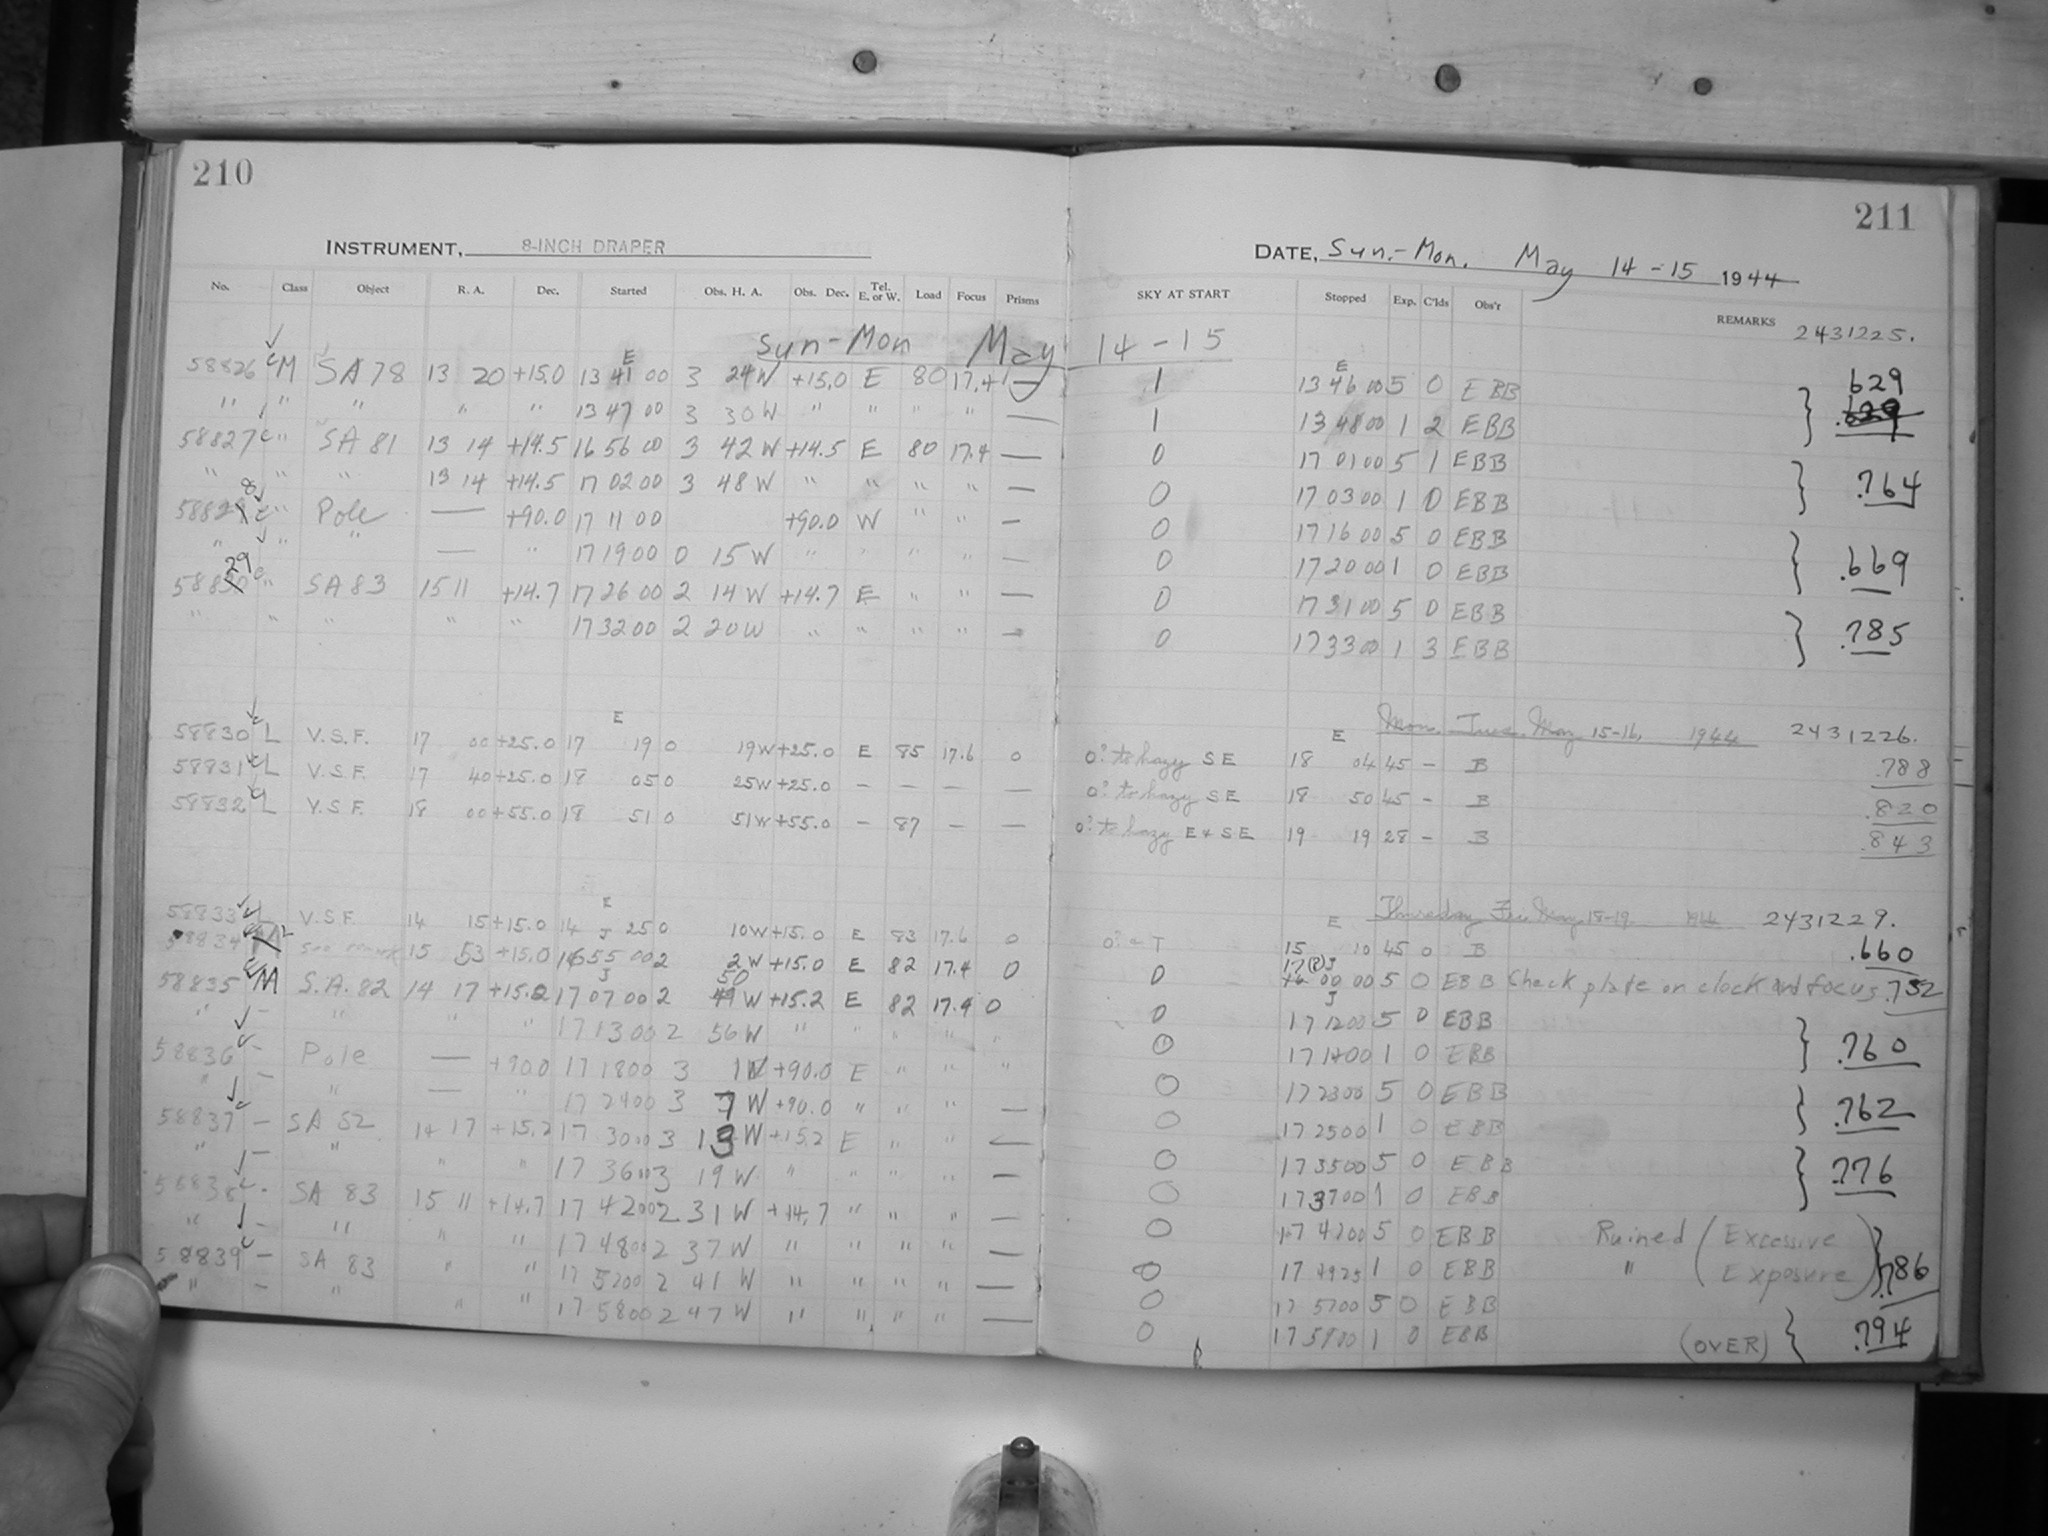 210
INSTRUMENT, 8-INCH DRAPER
No. Class Object R. A. Dec. Started Obs. H. A. Obs. Dec. Tel. E. or W. Load Focus Prisms
Sun-Mon May
E
58826 M SA 78 13 20 +15.0 13 41 00 3 24 W +15.0 E 80 17.4 —
" " " " " 13 47 00 3 30 W " " " " —
58827 " SA 81 13 14 +14.5 16 56 00 3 42 W +14.5 E 80 17.4 —
" " " 13 14 +14.5 17 02 00 3 48 W " " " " —
58828 " Pole — +90.0 17 11 00 +90.0 W " " —
" " " — " 17 19 00 0 15 W " " " " —
58829 " SA 83 15 11 +14.7 17 26 00 2 14 W +14.7 E " " —
" " " " " 17 32 00 2 20 W " " " " —
E
58830 L V.S.F. 17 00 +25.0 17 19 0 19 W +25.0 E 85 17.6 0
58831 L V.S.F. 17 40 +25.0 18 05 0 25 W +25.0 — — — —
58832 L V.S.F. 18 00 +55.0 18 51 0 51 W +55.0 — 87 — —
E
58833 L V.S.F. 14 15 +15.0 14 25 0 10 W +15.0 E 83 17.6 0
58834 See remark 15 53 +15.0 16 55 00 2 2 W +15.0 E 82 17.4 0
58835 M S.A. 82 14 17 +15.2 17 07 00 2 50 W +15.2 E 82 17.4 0
" — " " " 17 13 00 2 56 W " " " " "
58836 — Pole — +90.0 17 18 00 3 1 W +90.0 E " " "
" — " — " 17 24 00 3 7 W +90.0 " " " —
58837 — SA 52 14 17 +15.2 17 30 00 3 13 W +15.2 E " " —
" — " " " 17 36 00 3 19 W " " " " —
58838 - SA 83 15 11 +14.7 17 42 00 2 31 W +14.7 " " " —
" — " " " 17 48 00 2 37 W " " " " —
58839 — SA 83 " " 17 52 00 2 41 W " " " " —
" — " " " 17 58 00 2 47 W " " " " —
211
DATE, Sun.-Mon. May 14-15 1944
SKY AT START Stopped Exp. C'lds Obs'r REMARKS 2431225.
14-15
E
1 13 46 00 5 0 EBB 629
1 13 48 00 1 2 EBB .629
0 17 01 00 5 1 EBB
0 17 03 00 1 0 EBB .764
0 17 16 00 5 0 EBB
0 17 20 00 1 0 EBB .669
0 17 31 00 5 0 EBB
0 17 33 00 1 3 EBB .785
E Mon. Tues. May 15-16, 1944 2431226.
0? to hazy SE 18 04 45 — B .788
0? to hazy SE 18 50 45 — B .820
0? to hazy E & SE 19 19 28 — B .843
E Thursday Fri. May 18-19 1944 2431229.
15 10 45 0 B .660
0 17(?) 00 00 5 0 EBB Check plate on clock and focus .752
0 17 12 00 5 0 EBB
0 17 14 00 1 0 EBB .760
0 17 23 00 5 0 EBB
0 17 25 00 1 0 EBB .762
0 17 35 00 5 0 EBB
0 17 37 00 1 0 EBB .776
0 17 47 00 5 0 EBB Ruined (Excessive
0 17 49 25 1 0 EBB " Exposure) .786
0 17 57 00 5 0 EBB
0 17 59 00 1 0 EBB (OVER) .794